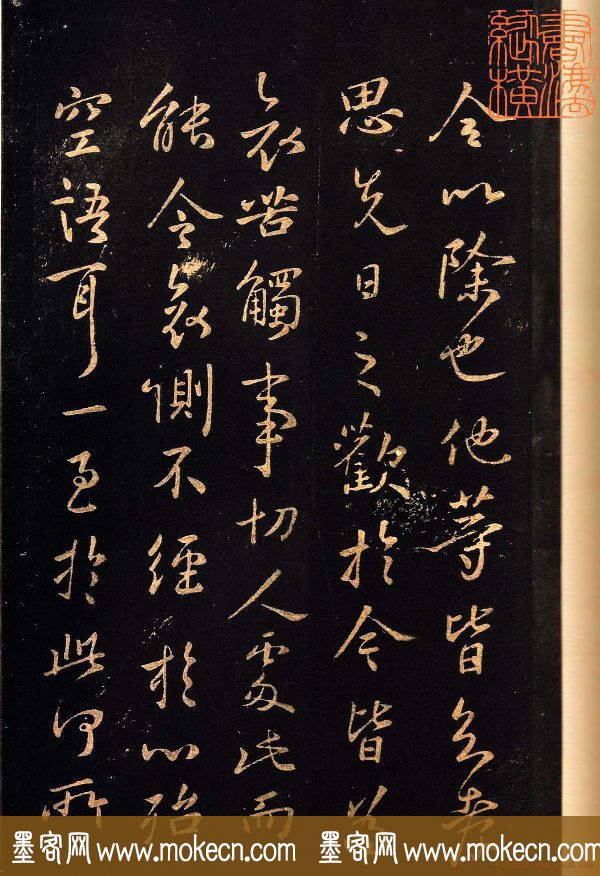 今以除也他等皆
思先日之歡於今皆為
哀苦觸事切人處此而
能令哀惻不經於心殆
空語耳一至於此何所
墨客网 www.mokecn.com 墨客网 www.mokecn.com